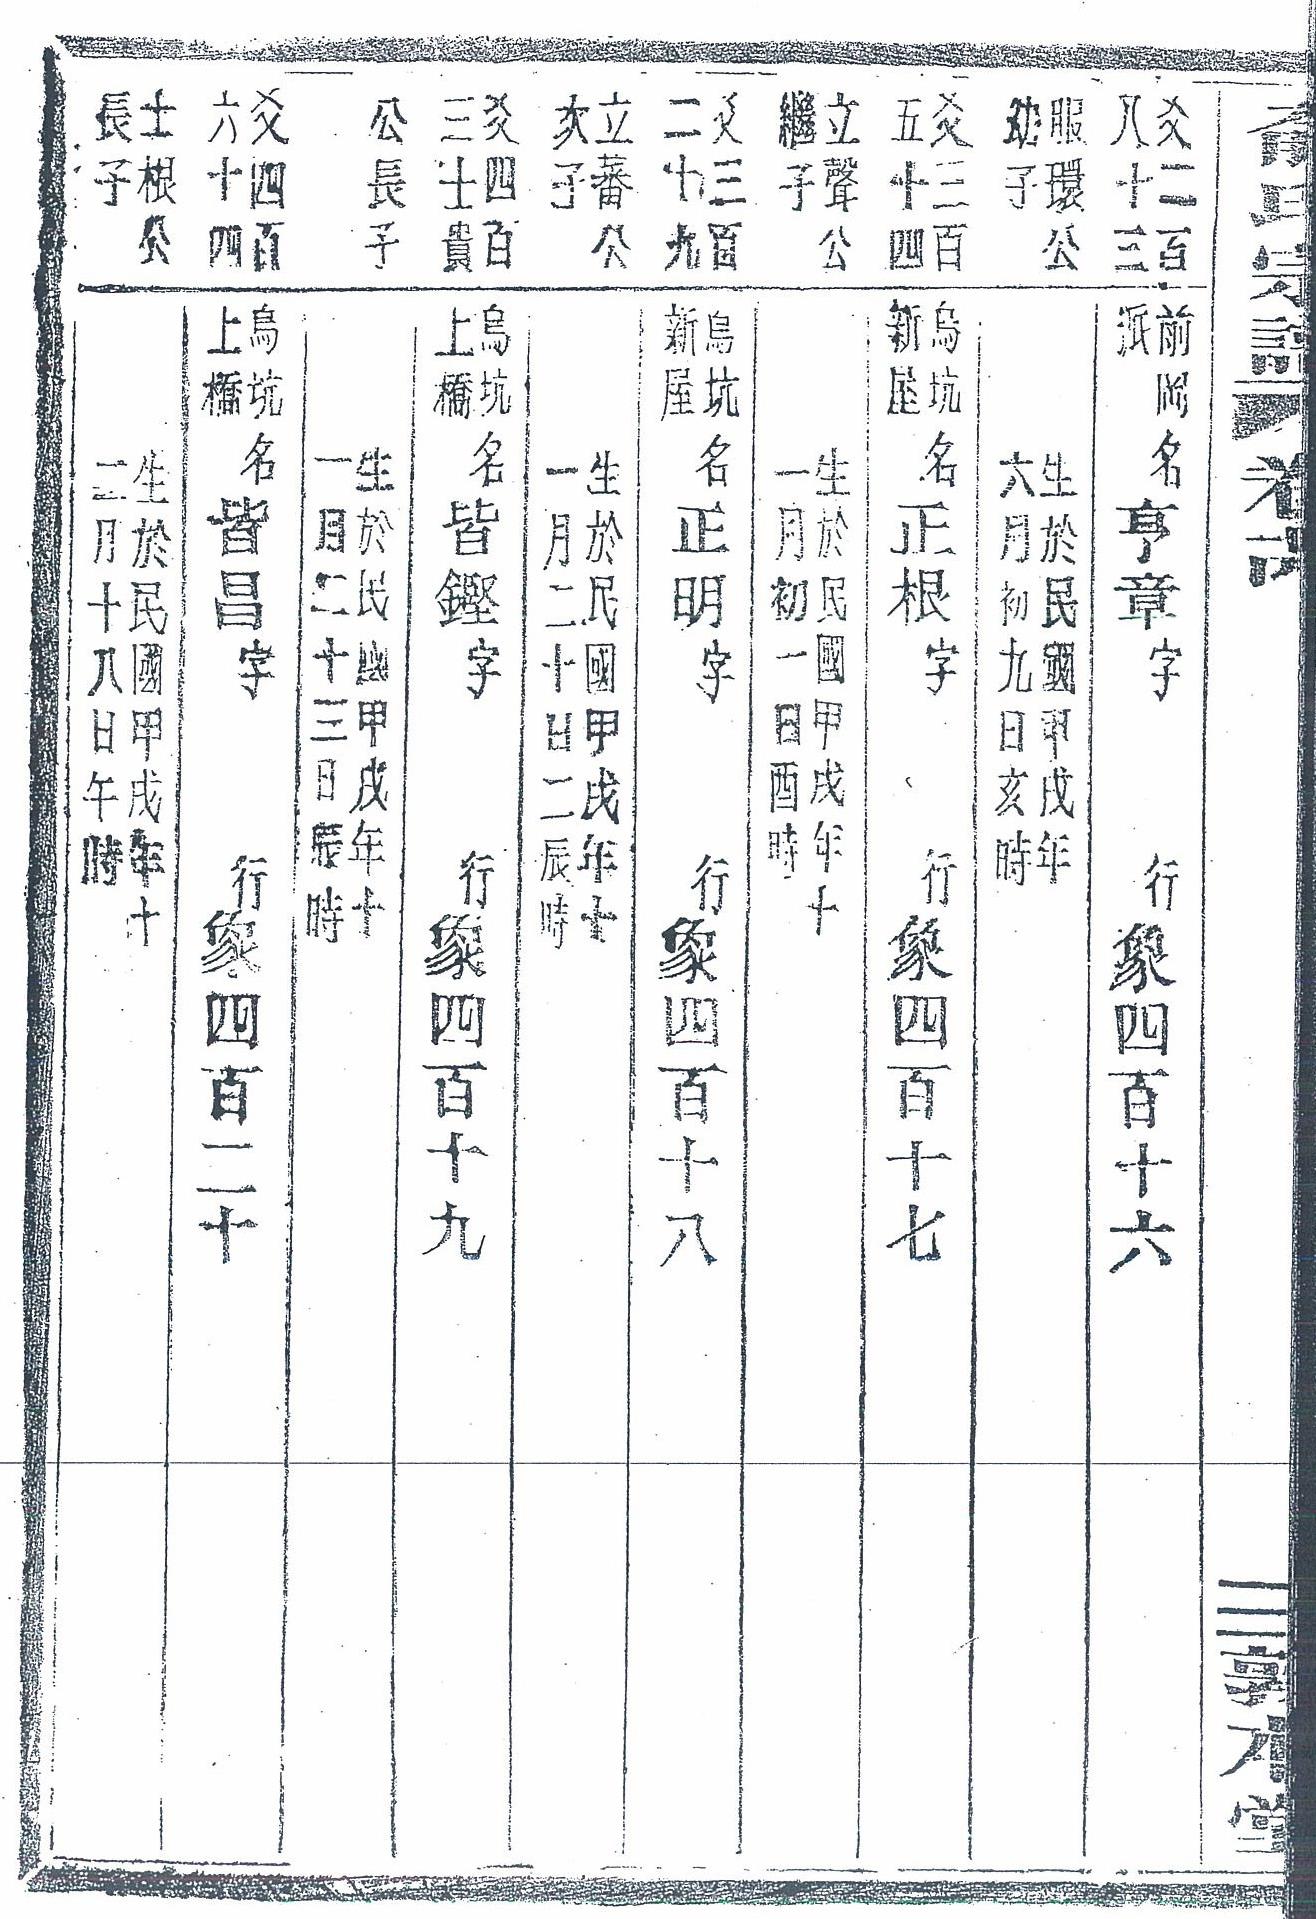 爻二百
八十三
服環公
幼子
前岡
派
名亨章字
行象四百十六
生於民國甲戌年
六月初九日亥時
爻三百
五十四
立聲公
繼子
烏坑
新屋
名正根字
行象四百十七
生於民國甲戌年十
一月初一日酉時
爻三百
二十九
立蕃公
次子
烏坑
新屋
名正明字
行象四百十八
生於民國甲戌年十
一月二十日二辰時
爻四百
三士貴
公長子
烏坑
上橋
名皆鏗字
行象四百十九
生於民國甲戌年十
一月二十三日辰時
爻四百
六十四
士根公
長子
烏坑
上橋
名皆昌字
行象四百二十
生於民國甲戌年十
二月十八日午時